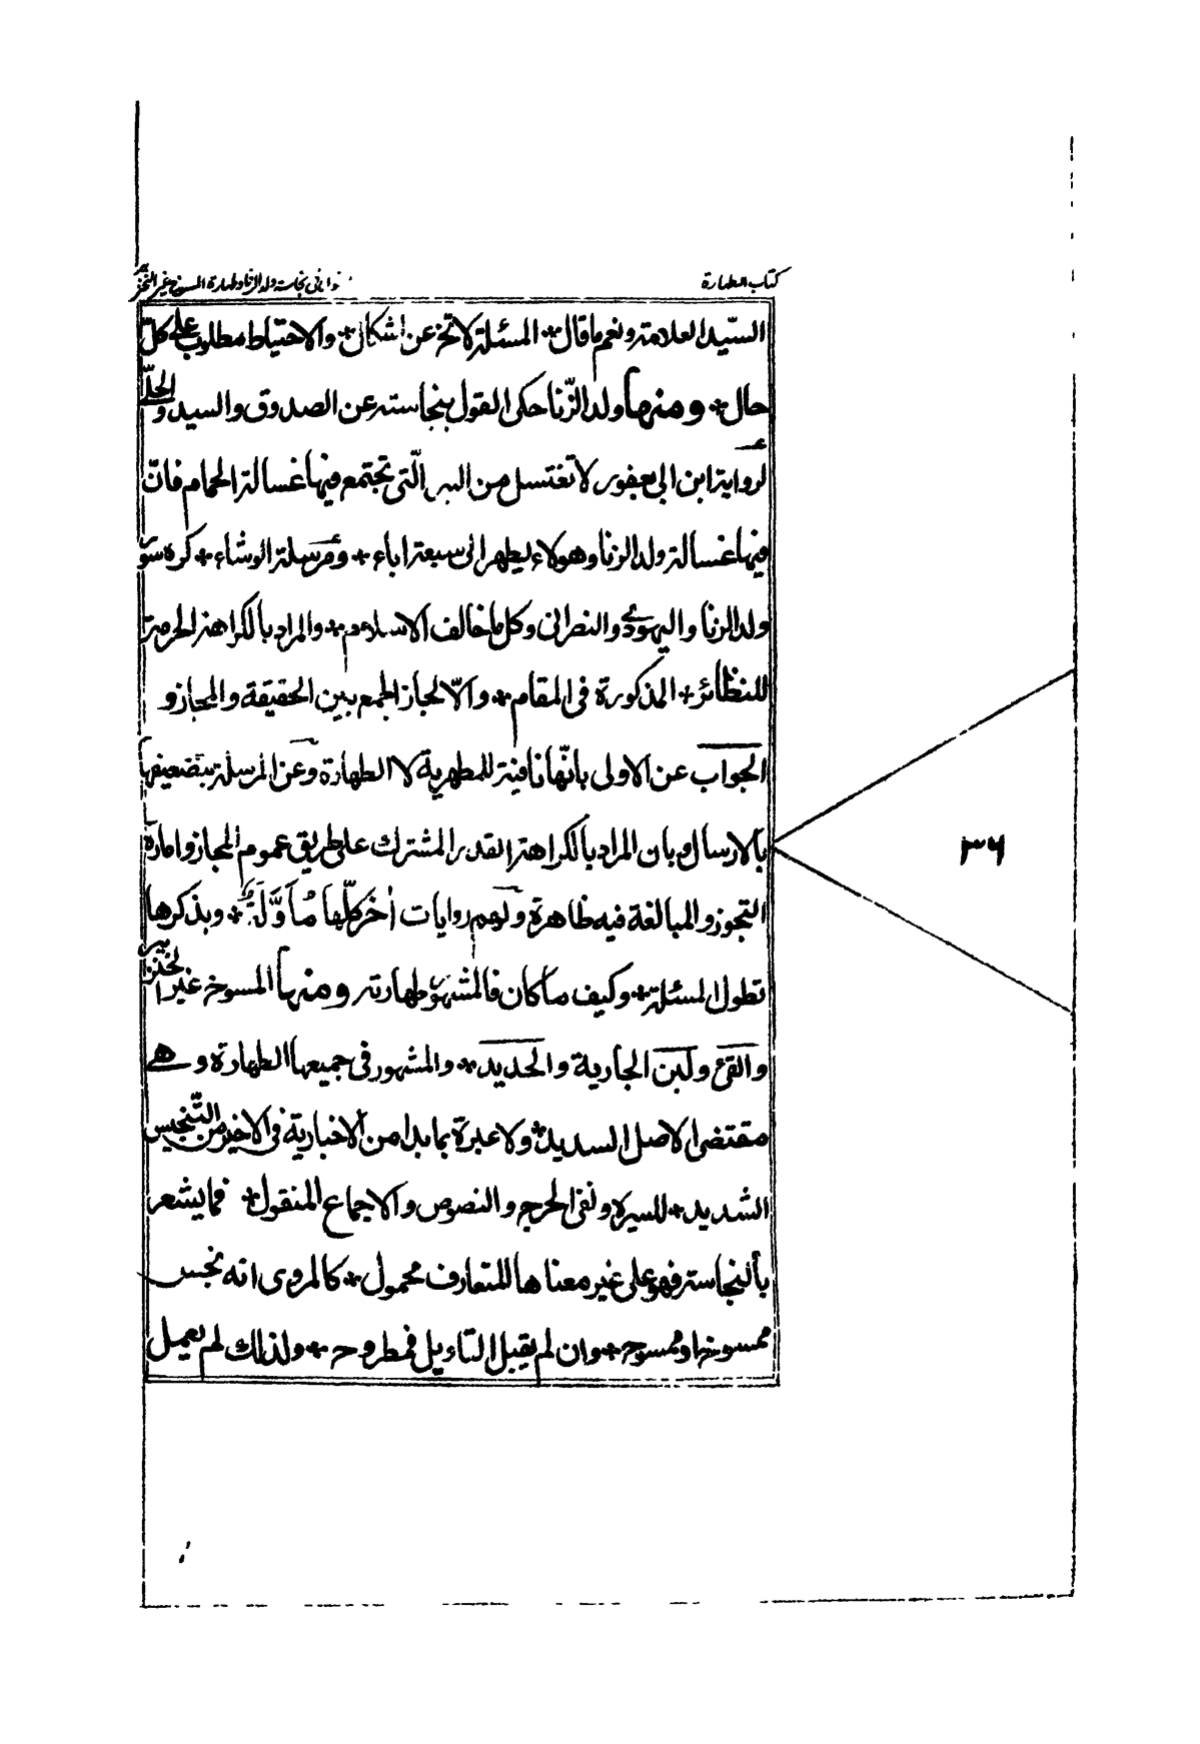 كتاب الطهارة
نجاسة ولد الزنا وطهارة المسوخ غير الخنزير
السيّد العلامة ونعم ما قال * المسئلة لا تخ عن اشكال * والاحتياط مطلوب على كلّ
حال * ومنها ولد الزّنا حكى القول بنجاسته عن الصدوق والسيد والحلّي
لرواية ابن ابي يعفور لا تغتسل من البير الّتى تجتمع فيها غسالة الحمام فانّ
فيها غسالة ولد الزنا وهو لا يطهر الى سبعة اباء * ومرسلة الوشاء * كره سور
ولد الزنا واليهودي والنصرانى وكل ما خالف الاسلام * والمراد بالكراهة الحرمة
للنظائر * المذكورة فى المقام * والّا لجاز الجمع بين الحقيقة والمجاز و
الجواب عن الاولى بانّها نافية للمطهرية لا الطهارة وعن المرسلة بتضعيفها
بالارسال وبان المراد بالكراهة القدر المشترك على طريق عموم المجاز وامارة
التجوز والمبالغة فيه ظاهرة ولهم روايات أخر كلّها مُأوَّلَة * وبذكرها
تطول المسئلة * وكيف ما كان فالمشهور طهارته ومنها المسوخ غير الخنزير
والقئ ولبن الجارية والحديد * والمشهور فى جميعها الطهارة وهے
مقتضى الاصل السديد * ولا عبرة بما بدا من الاخبارية فى الاخير من التّنجيس
الشديد * للسيرة ونفى الحرج والنصوص والاجماع المنقول * فما يشعر
بالنجاسة فهو على غير معناها المتعارف محمول * كالمروى انه نجس
ممسوخ او ممسوح * وان لم يقبل التاويل فمطروح * ولذلك لم يعمل
٣٦